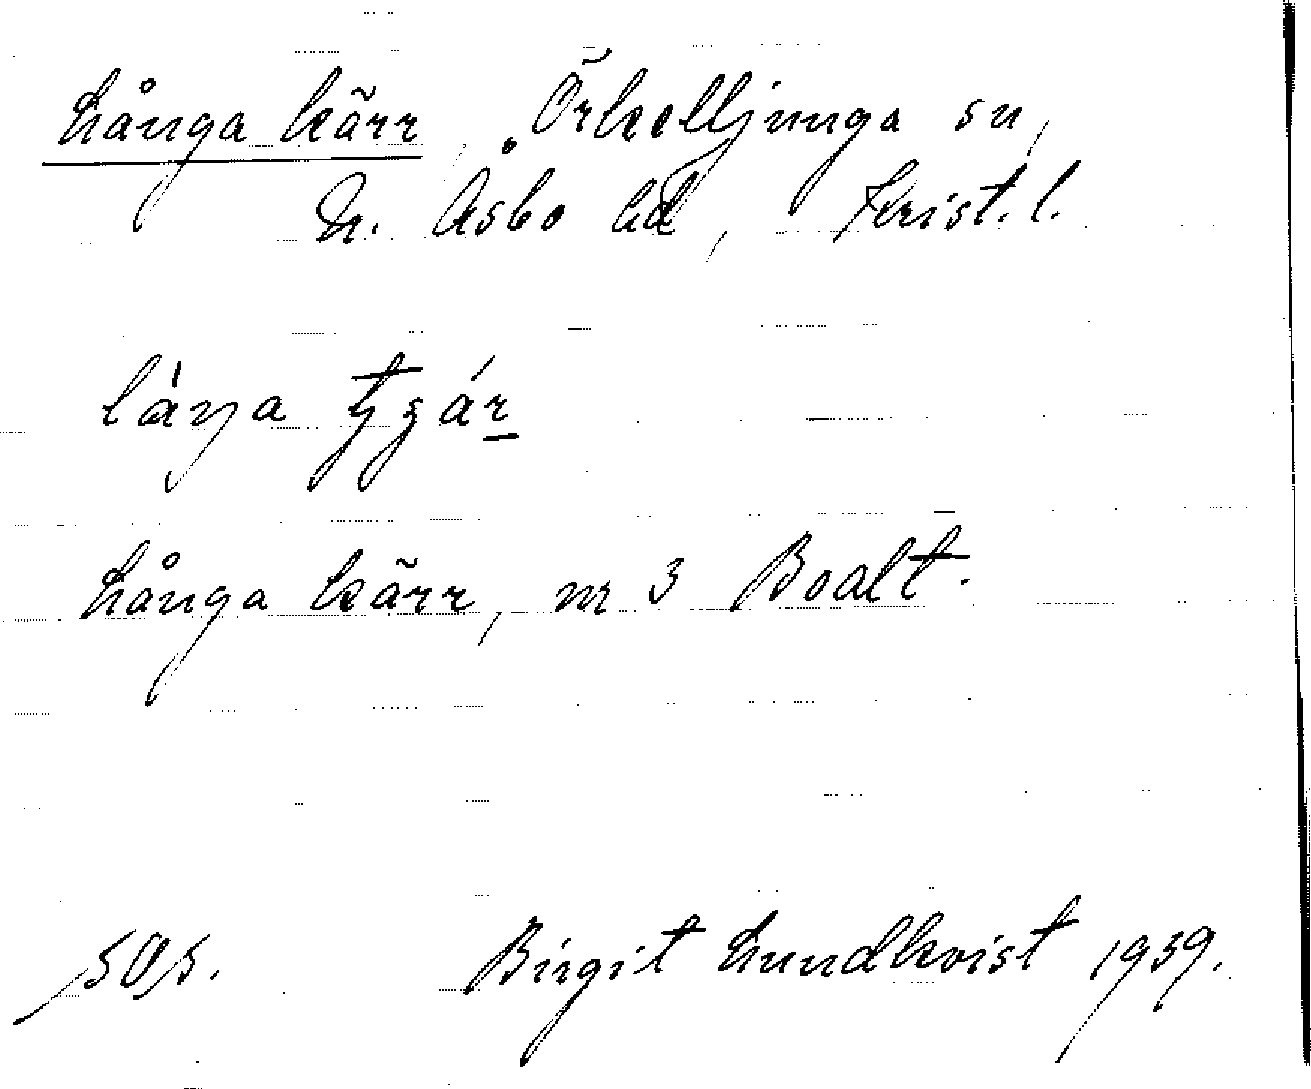 Långa kärr, Örkelljunga sn,
N. Åsbo hd, Krist. l.
Långa kärr, nr 3 Boalt.
Birgit Lundkvist 1939.